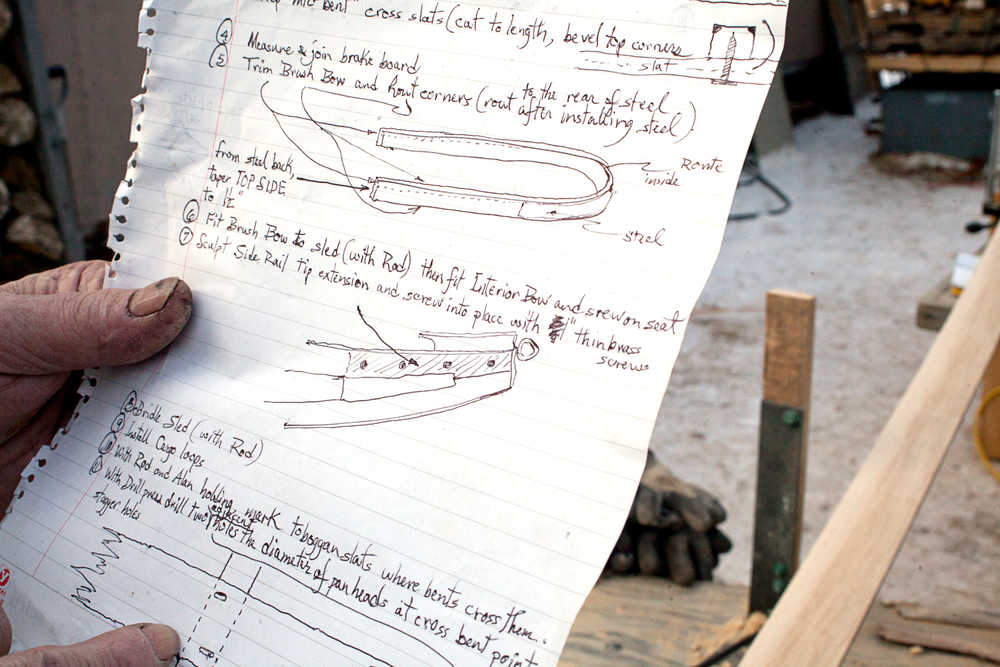 mid bent" cross slats (cut to length, bevel top corners
slat
④ Measure & join brake board
⑤ Trim Brush Bow and Rout corners (rout after installing steel)
to the rear of steel
Route
inside
from steel back,
taper TOP SIDE
to 1½"
steel
⑥ Fit Brush Bow to sled (with Rod) then fit Interior Bow and screw on seat
⑦ Sculpt Side Rail tip extension and screw into place with 1" thin brass
screws
⑧ Bridle Sled (with Rod)
⑨ Install Cargo loops
⑩ With Rod and Alan holding mark toboggan slats where bents cross them.
⑪ With Drill press drill two adjacent holes the diameter of pan heads at cross bent point
stagger holes